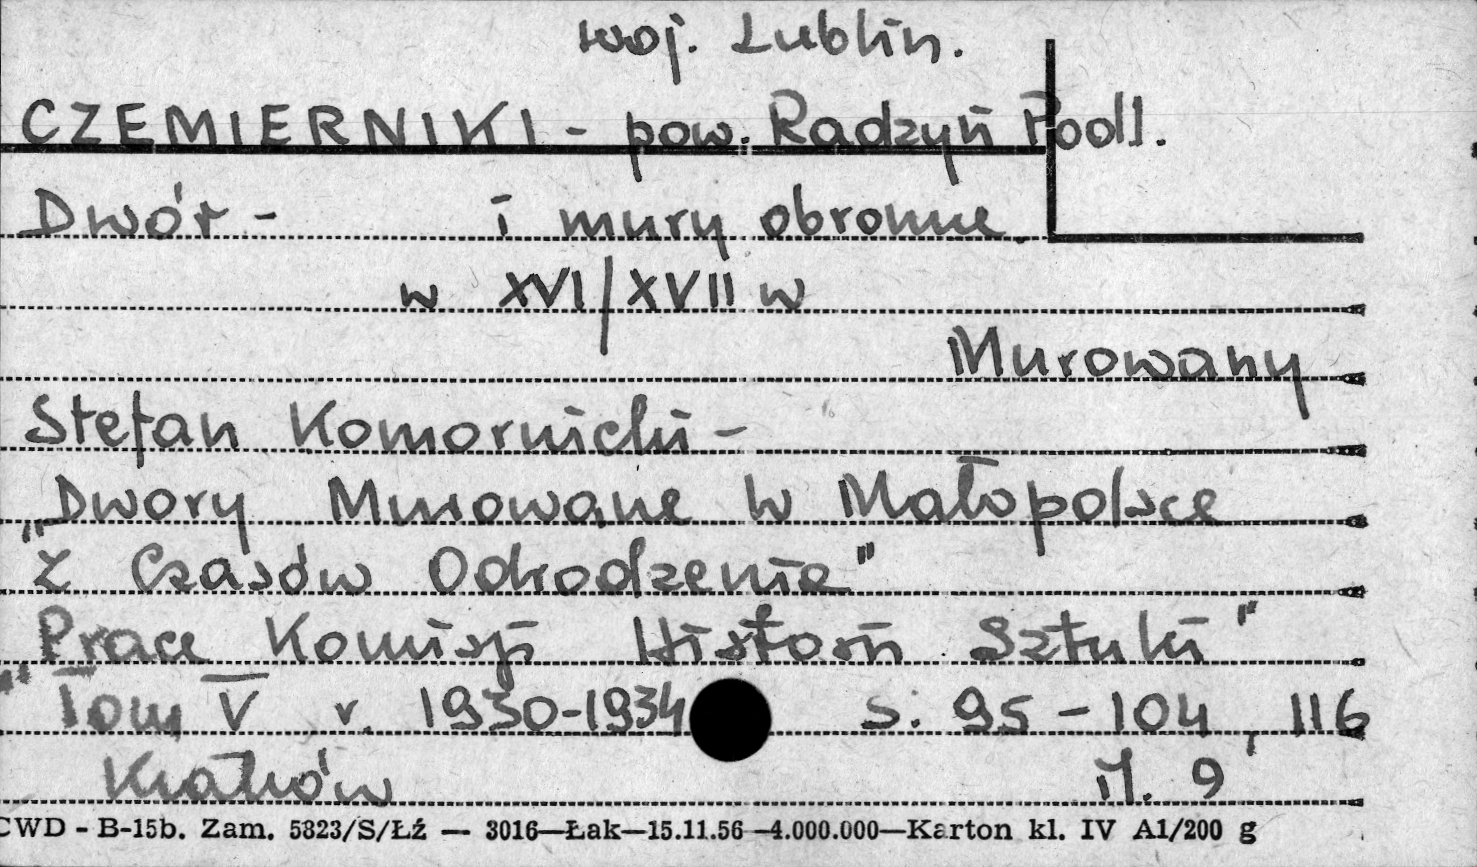 woj. Lublin.
CZEMIERNIKI - pow. Radzyń Podl.
Dwór - i mury obronne
w XVI/XVII w
Murowany
Stefan Komornicki -
„Dwory Murowane w Małopolsce
z Czasów Odrodzenia"
"Prace Komisji Historii Sztuki"
Tom V r. 1930-1934 s. 95-104, 116
Kraków il. 9
CWD - B-15b. Zam. 5823/S/Łź — 3016—Łak—15.11.56—4.000.000—Karton kl. IV A1/200 g